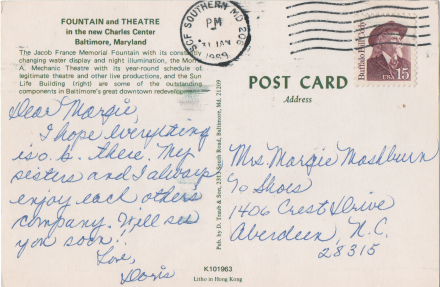 FOUNTAIN and THEATRE
in the new Charles Center
Baltimore, Maryland
The Jacob France Memorial Fountain with its constantly
changing water display and night illumination, the Morris
A. Mechanic Theatre with its year-round schedule of
legitimate theatre and other live productions, and the Sun
Life Building (right) are some of the outstanding
components in Baltimore's great downtown redevelopment.
SCF SOUTHERN MD 206
PM
31 JAN
1989
Buffalo Bill Cody
USA 15
POST CARD
Address
Dear Margie,
I hope everything
is o.k. there. My
sisters and I always
enjoy each others
company. Will see
you soon!
Love,
Doris
Pub. by D. Traub & Son, South Road, Baltimore, Md. 21209
Mrs. Margie Mashburn
c/o Shoes
1406 Crest Drive
Aberdeen, N.C.
28315
K101963
Litho in Hong Kong